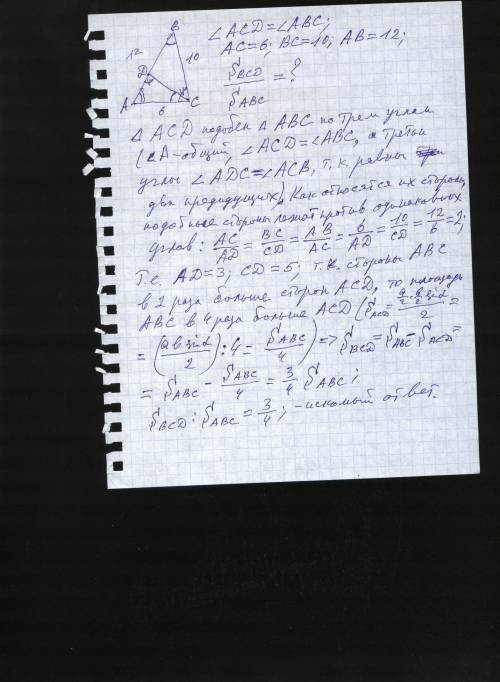 ∠ACD=∠ABC;
AC=6; BC=10; AB=12;
S_BCD / S_ABC = ?
B
12
10
D
A
6
C
Δ ACD подобен Δ ABC по трем углам
(∠A-общий, ∠ACD=∠ABC, а третьи
углы ∠ADC=∠ACB, т.к. равны
два предидущих). Как относятся их стороны,
подобные стороны лежат против одинаковых
углав: AC/AD = BC/CD = AB/AC = 6/AD = 10/CD = 12/6 = 2;
Т.е. AD=3; CD=5; т.к. стороны ABC
в 2 раза больше сторон ACD, то площадь
ABC в 4 раза больше ACD (S_ACD = (a/2 · b/2 sin α)/2 =
= (ab sin α / 2) : 4 = S_ABC/4) => S_BCD = S_ABC - S_ACD =
= S_ABC - S_ABC/4 = 3/4 S_ABC;
S_BCD : S_ABC = 3/4; -искомый ответ.